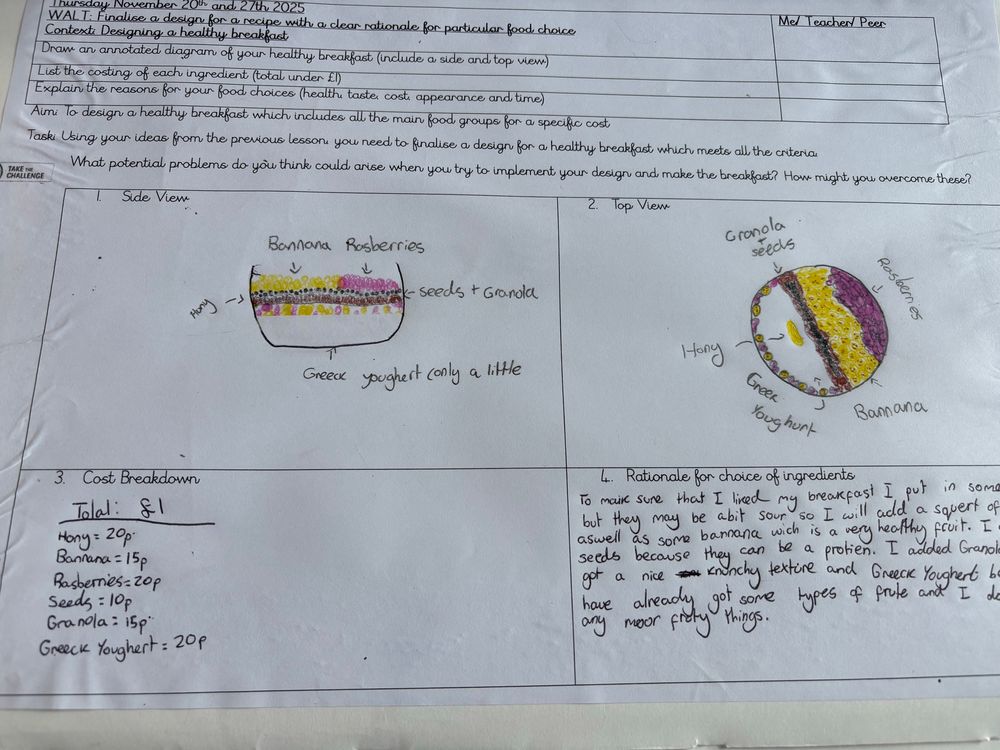 Thursday November 20th and 27th 2025
WALT: Finalise a design for a recipe with a clear rationale for particular food choice
Me/ Teacher/ Peer
Context: Designing a healthy breakfast
Draw an annotated diagram of your healthy breakfast (include a side and top view)
List the costing of each ingredient (total under £1)
Explain the reasons for your food choices (health, taste, cost, appearance and time)
Aim: To design a healthy breakfast which includes all the main food groups for a specific cost
Task: Using your ideas from the previous lesson, you need to finalise a design for a healthy breakfast which meets all the criteria.
TAKE THE
CHALLENGE
What potential problems do you think could arise when you try to implement your design and make the breakfast? How might you overcome these?
1. Side View
Bannana Rasberries
Hony
seeds + Granola
Greeck youghert (only a little
2. Top View
Granola
+
seeds
Rasberries
Hony
Greek
Youghurt
Bannana
3. Cost Breakdown
Total: £1
Hony = 20p.
Bannana = 15p
Rasberries = 20p
Seeds = 10p
Granola = 15p.
Greeck Youghert = 20p
4. Rationale for choice of ingredients
To maik sure that I liked my breakfast I put in some
but they may be abit sour so I will add a squert of
aswell as some bannana wich is a very healthy fruit. I
seeds because they can be a protien. I added Granola
got a nice knonchy textire and Greeck Youghert be
have already got some types of frute and I do
any moor fruty things.